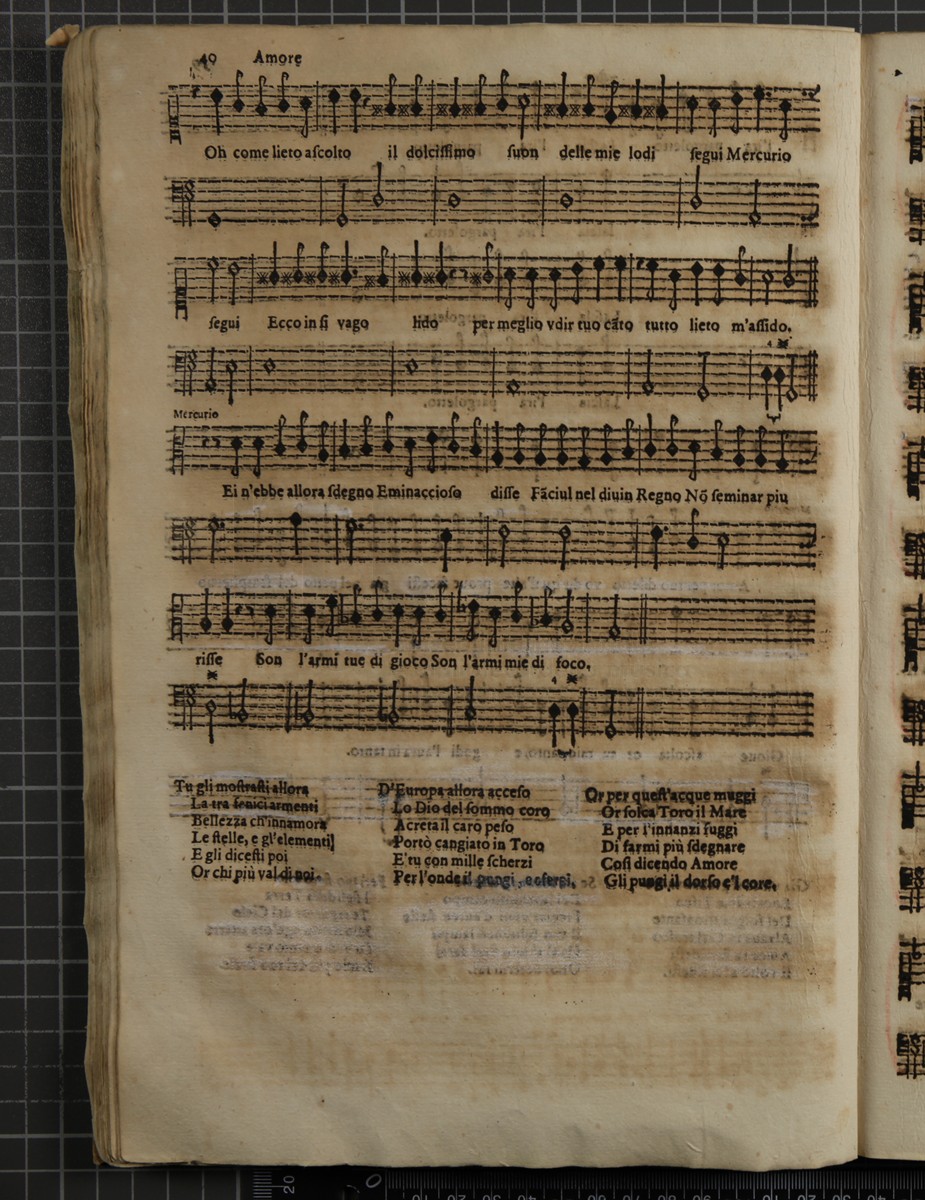 40 Amore
Oh come lieto ascolto il dolcissimo suon delle mie lodi segui Mercurio
segui Ecco in si vago lido per meglio vdir tuo cãto tutto lieto m'assido.
4
Mercurio
Ei n'ebbe allora sdegno Eminaccioso disse Fãciul nel diuin Regno Nõ seminar piu
risse Son l'armi tue di gioco Son l'armi mie di foco.
4
Tu gli mostrasti allora
La tra fenici armenti
Bellezza ch'innamora
Le stelle, e gl'elementi
E gli dicesti poi
Or chi più val di noi.
D'Europa allora acceso
Lo Dio del sommo coro
A creta il caro peso
Portò cangiato in Toro
E' tu con mille scherzi
Per l'onde il pungi, e sferzi.
Or per quest'acque muggi
Or solca Toro il Mare
E per l'innanzi fuggi
Di farmi più sdegnare
Così dicendo Amore
Gli pungi il dorso e'l core.